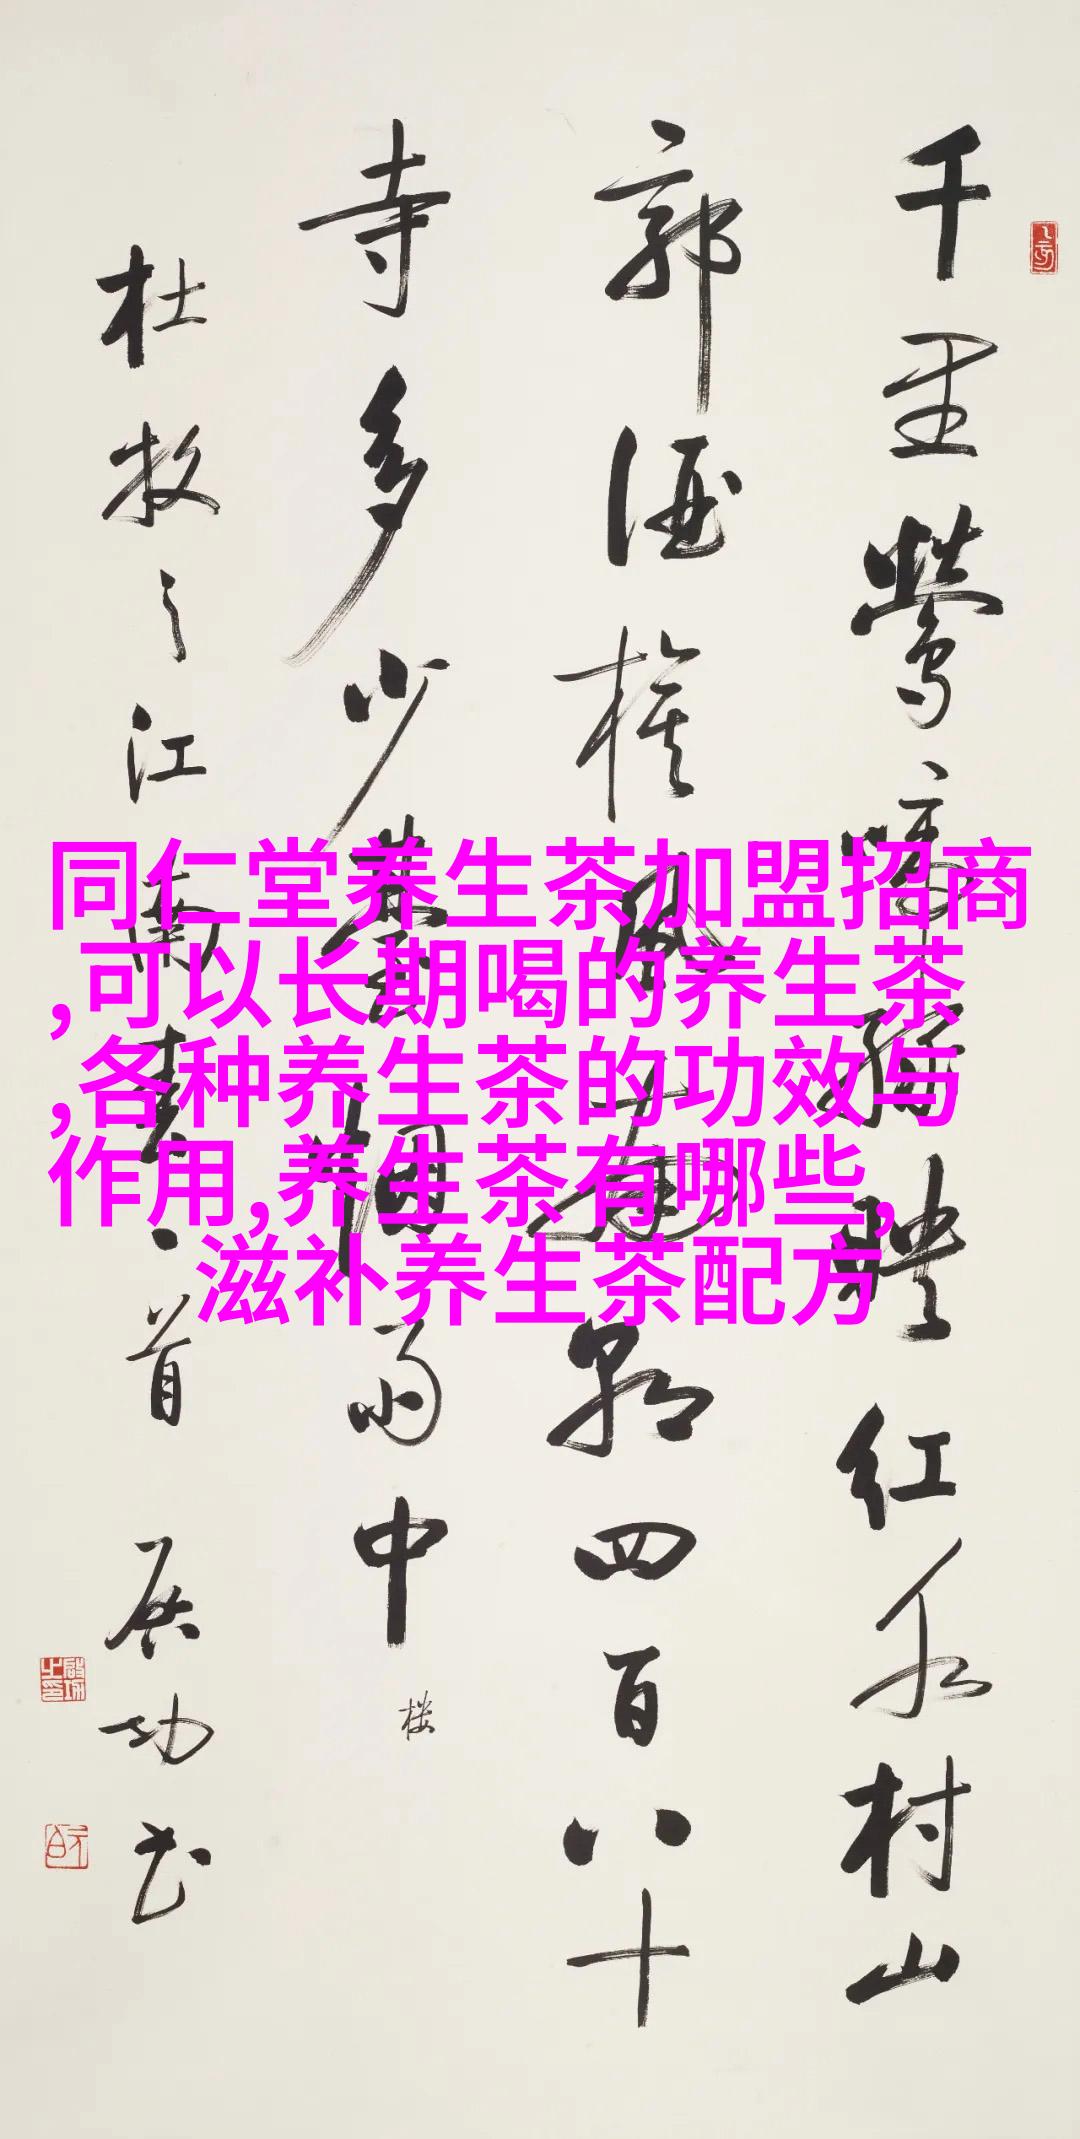 千里鶯啼绿映红水村山
郭酒旗风南朝四百八十
寺多少臺烟雨中 楼
杜牧之江南春一首 启功书
啟功之印
元白
同仁堂养生茶加盟招商
,可以长期喝的养生茶
,各种养生茶的功效与
作用,养生茶有哪些,
滋补养生茶配方